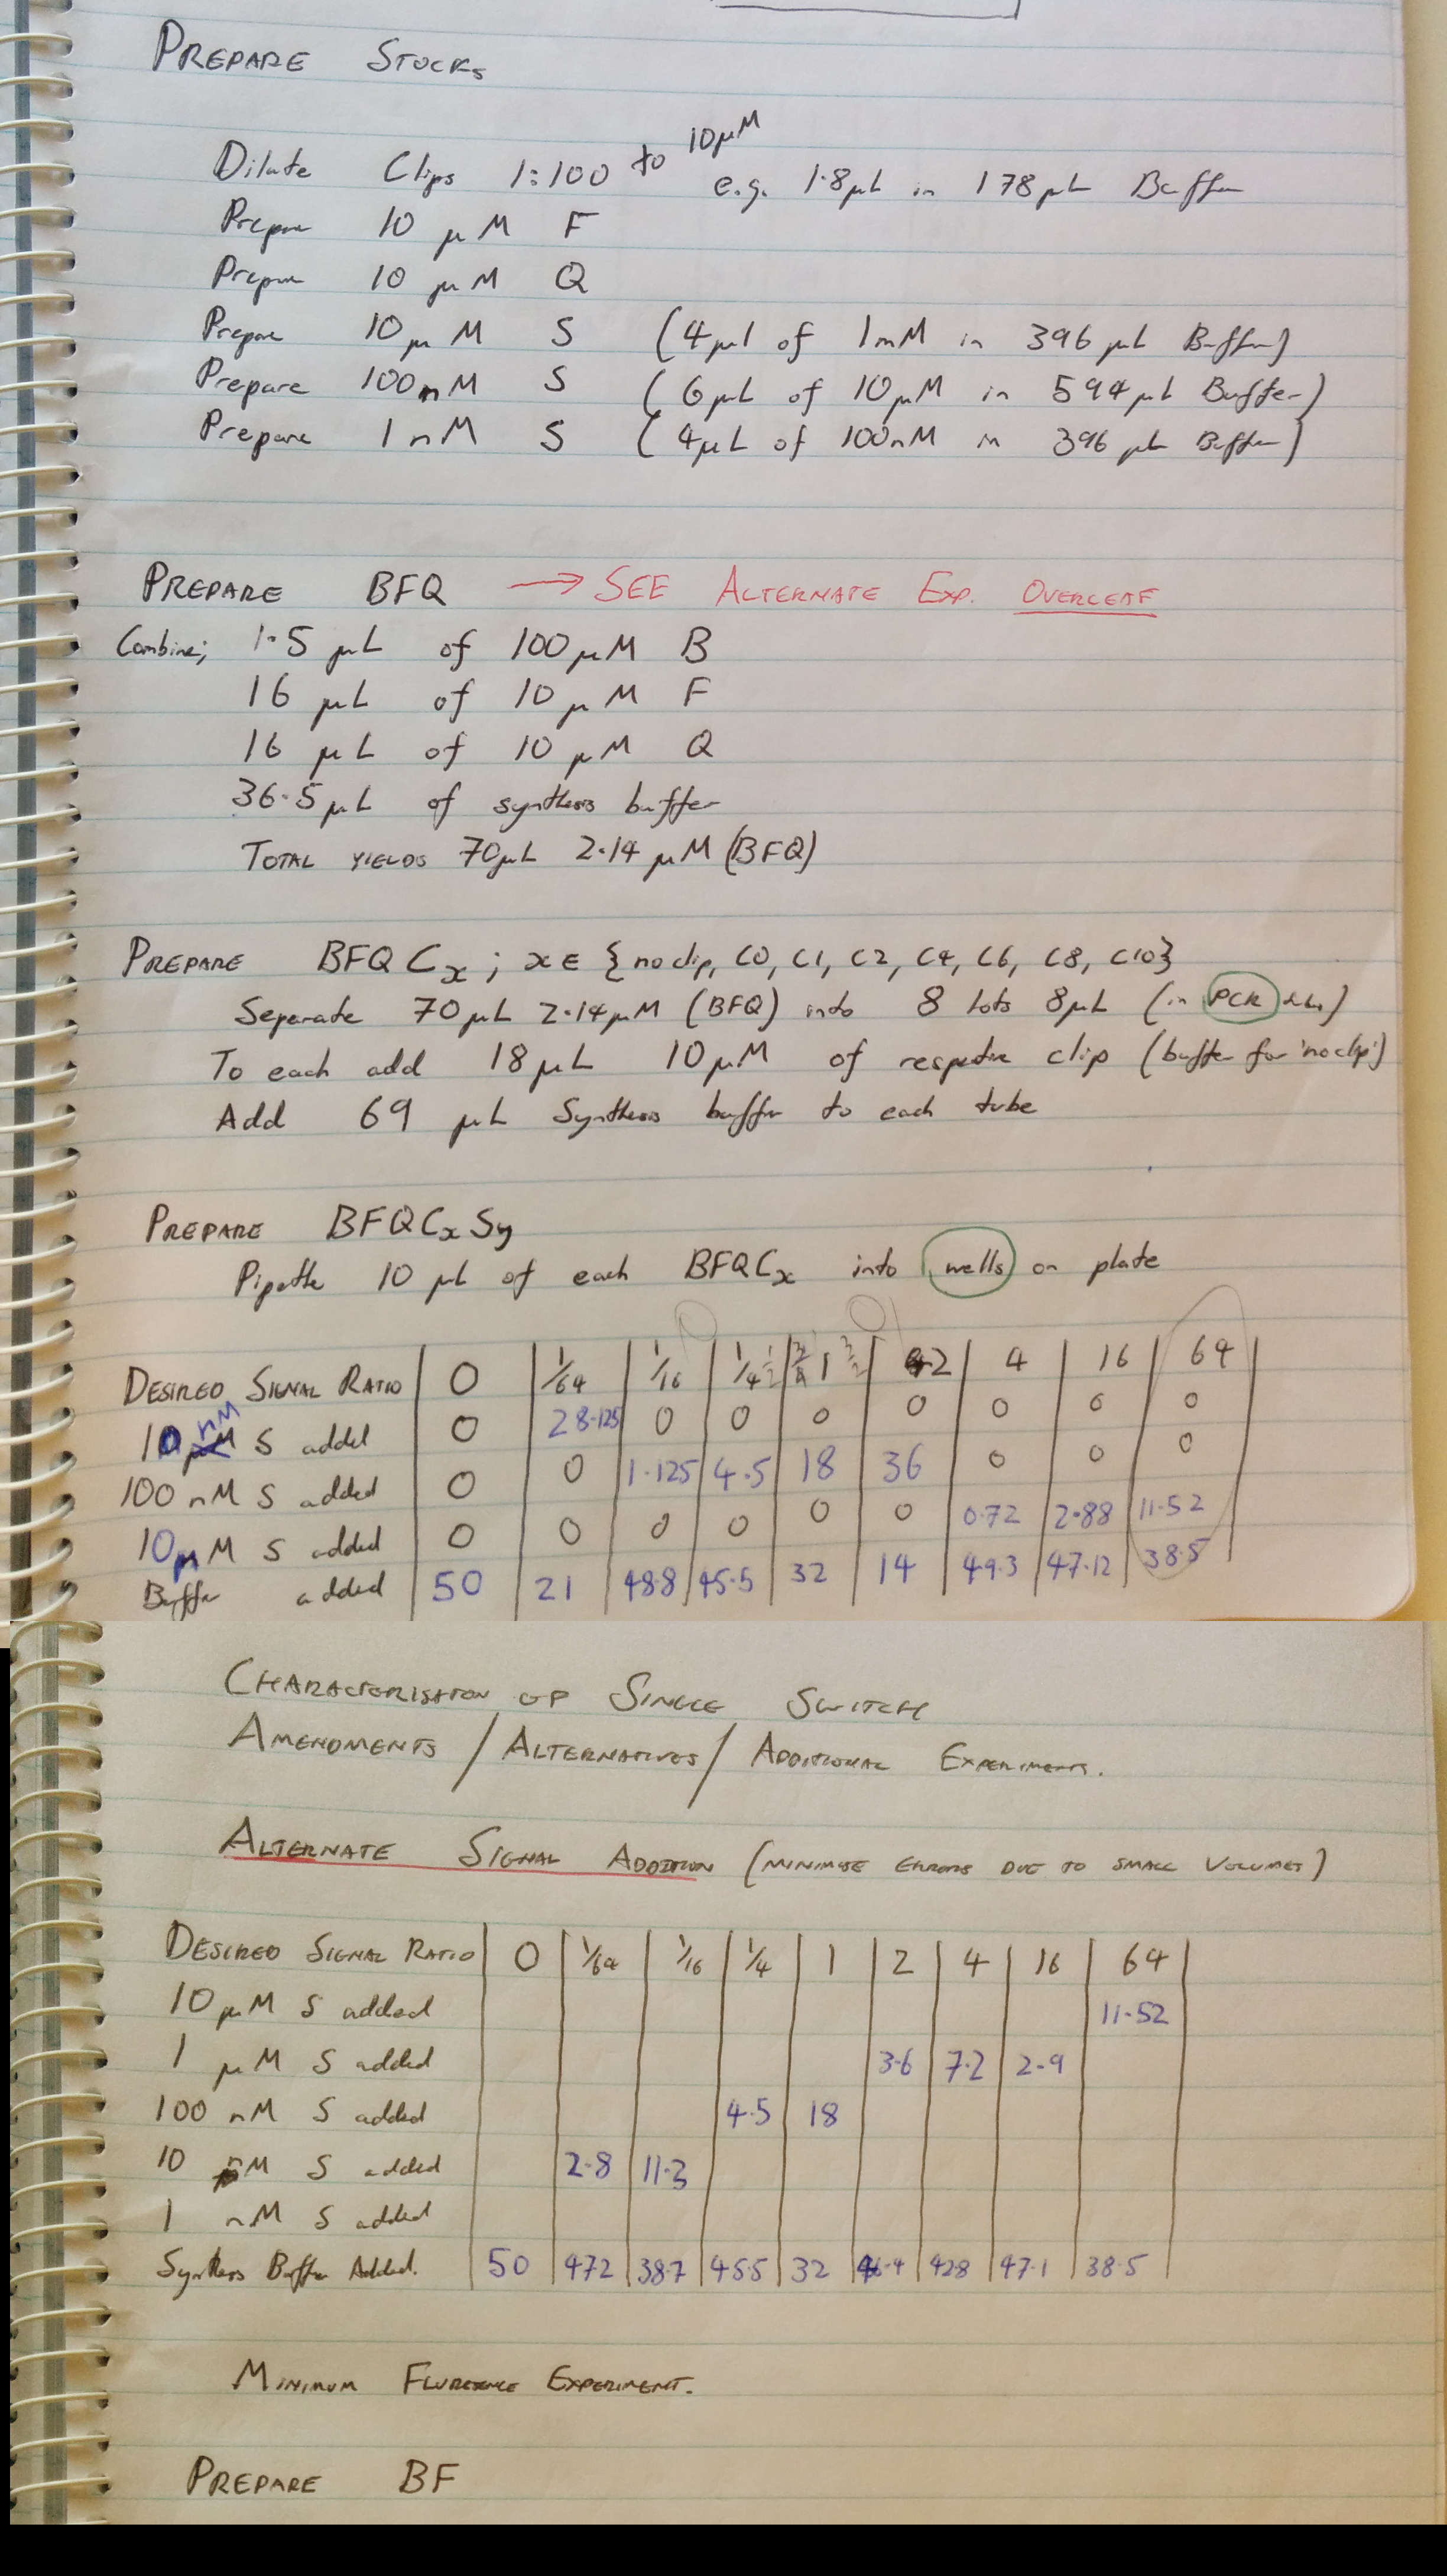 PREPARE STOCKS
Dilute Clips 1:100 to 10μM e.g. 1.8μL in 178μL Buffer
Prepare 10 μM F
Prepare 10 μM Q
Prepare 10μM S (4μl of 1mM in 396μL Buffer)
Prepare 100nM S (6μL of 10μM in 594μL Buffer)
Prepare 1nM S (4μL of 100nM in 396μL Buffer)
PREPARE BFQ → SEE ALTERNATE EXP. OVERLEAF
Combine; 1.5 μL of 100μM B
16 μL of 10μM F
16 μL of 10μM Q
36.5μL of synthesis buffer
TOTAL YIELDS 70μL 2.14μM (BFQ)
PREPARE BFQCx; x∈{no clip, C0, C1, C2, C4, C6, C8, C10}
Seperate 70μL 2.14μM (BFQ) into 8 lots 8μL (in PCR)
To each add 18μL 10μM of respective clip (buffer for 'no clip')
Add 69 μL Synthesis buffer to each tube
PREPARE BFQCxSy
Pipette 10 μL of each BFQCx into wells on plate
DESIRED SIGNAL RATIO 0 1/64 1/16 1/4 1 2 4 16 64
10nM S added 0 28.125 0 0 0 0 0 0 0
100 nM S added 0 0 1.125 4.5 18 36 0 0 0
10μM S added 0 0 0 0 0 0 0.72 2.88 11.52
Buffer added 50 21 48.8 45.5 32 14 49.3 47.12 38.5
CHARACTERISATION OF SINGLE SWITCH
AMENDMENTS / ALTERNATIVES / ADDITIONAL EXPERIMENTS.
ALTERNATE SIGNAL ADDITION (MINIMISE ERRORS DUE TO SMALL VOLUMES)
DESIRED SIGNAL RATIO 0 1/64 1/16 1/4 1 2 4 16 64
10μM S added 11.52
1 μM S added 3.6 7.2 2.9
100 nM S added 4.5 18
10 nM S added 2.8 11.3
1 nM S added
Synthesis Buffer Added. 50 47.2 38.7 45.5 32 46.4 42.8 47.1 38.5
MINIMUM EXPERIMENT.
PREPARE BF